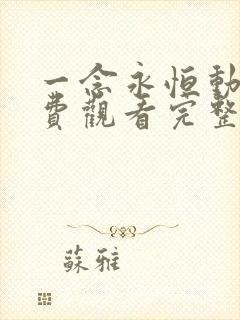 一念永恒動
費觀看完整
蘇雅